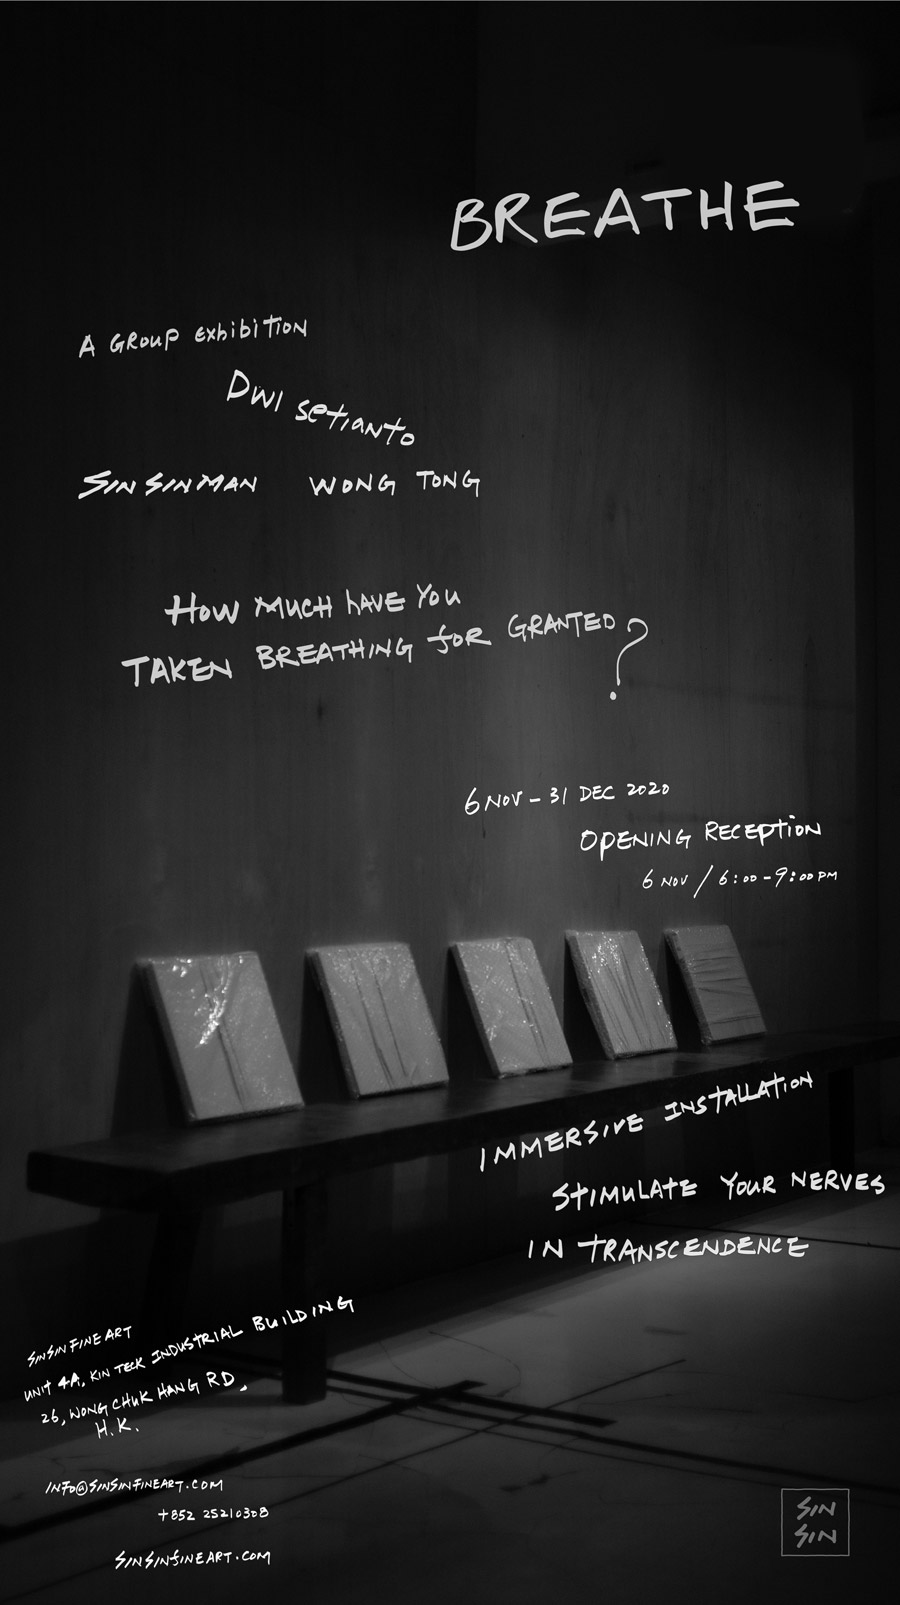 BREATHE
A GROUP EXHIBITION
DWI SETIANTO
SIN SIN MAN WONG TONG
HOW MUCH HAVE YOU
TAKEN BREATHING FOR GRANTED?
6 NOV - 31 DEC 2020
OPENING RECEPTION
6 NOV / 6:00 - 9:00 PM
IMMERSIVE INSTALLATION
STIMULATE YOUR NERVES
IN TRANSCENDENCE
SIN SIN FINE ART
UNIT 4A, KIN TECK INDUSTRIAL BUILDING
26, WONG CHUK HANG RD,
H.K.
INFO@SINSINFINEART.COM
+852 25210308
SINSINFINEART.COM
SIN
SIN